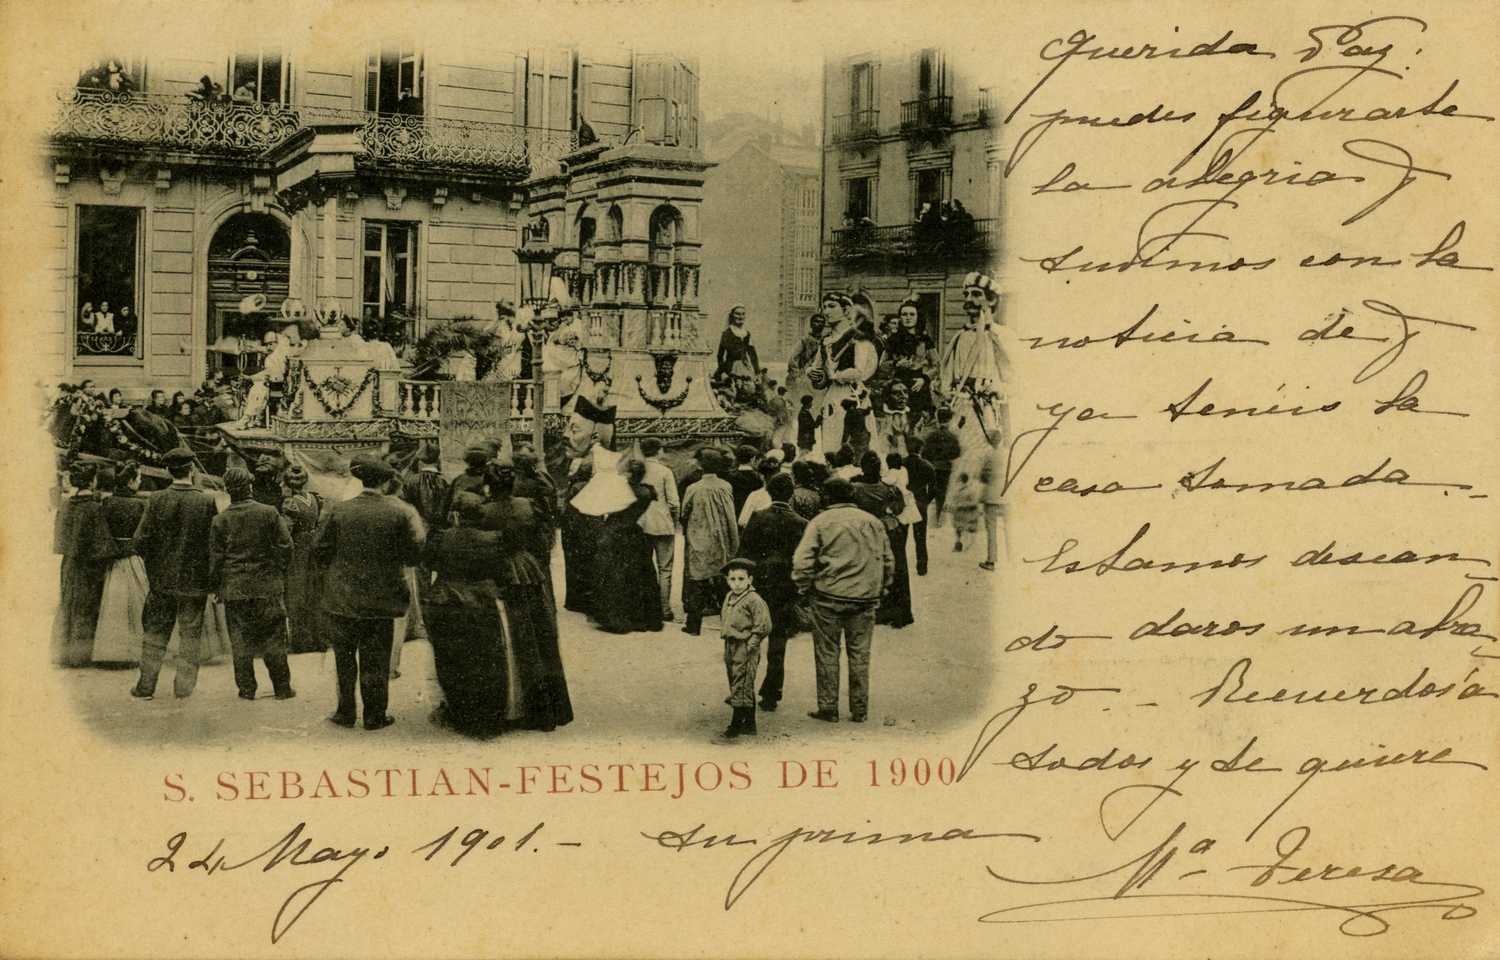 Querida Paz:
puedes figurarte
la alegria q
tuvimos con la
noticia de q
ya tenéis la
casa tomada. -
Estamos desean-
do daros un abra-
zo. - Recuerdos á
todos y te quiere
S. SEBASTIAN-FESTEJOS DE 1900
24 Mayo 1901. - tu prima
Mª Teresa